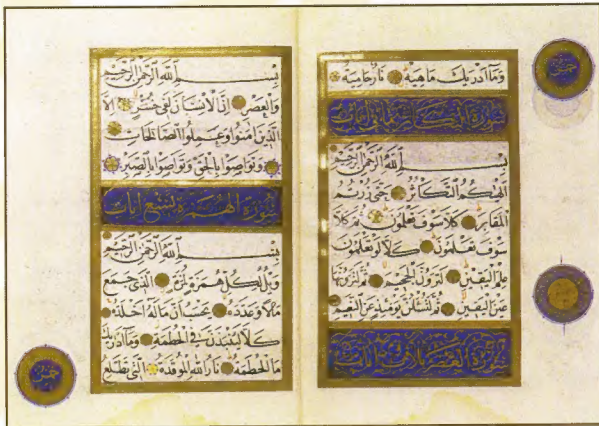 وَمَا أَدْرَيكَ مَاهِيَهْ نَارٌ حَامِيَةٌ
سُورَةُ التَّكَاثُرِ ثَمَانِي آيَاتٍ
بِسْمِ اللَّهِ الرَّحْمَنِ الرَّحِيمِ
أَلْهَيكُمُ التَّكَاثُرُ حَتَّى زُرْتُمُ
الْمَقَابِرَ كَلَّا سَوْفَ تَعْلَمُونَ ثُمَّ كَلَّا
سَوْفَ تَعْلَمُونَ كَلَّا لَوْ تَعْلَمُونَ
عِلْمَ الْيَقِينِ لَتَرَوُنَّ الْجَحِيمَ ثُمَّ لَتَرَوُنَّهَا
عَيْنَ الْيَقِينِ ثُمَّ لَتُسْئَلُنَّ يَوْمَئِذٍ عَنِ النَّعِيمِ
سُورَةُ الْعَصْرِ ثَلَاثُ آيَاتٍ
بِسْمِ اللَّهِ الرَّحْمَنِ الرَّحِيمِ
وَالْعَصْرِ إِنَّ الْإِنْسَانَ لَفِي خُسْرٍ إِلَّا
الَّذِينَ آمَنُوا وَعَمِلُوا الصَّالِحَاتِ
وَتَوَاصَوْا بِالْحَقِّ وَتَوَاصَوْا بِالصَّبْرِ
سُورَةُ الْهُمَزَةِ تِسْعُ آيَاتٍ
بِسْمِ اللَّهِ الرَّحْمَنِ الرَّحِيمِ
وَيْلٌ لِكُلِّ هُمَزَةٍ لُمَزَةٍ الَّذِي جَمَعَ
مَالًا وَعَدَّدَهُ يَحْسَبُ أَنَّ مَالَهُ أَخْلَدَهُ
كَلَّا لَيُنْبَذَنَّ فِي الْحُطَمَةِ وَمَا أَدْرَيكَ
مَا الْحُطَمَةُ نَارُ اللَّهِ الْمُوقَدَةُ الَّتِي تَطَّلِعُ
خمس